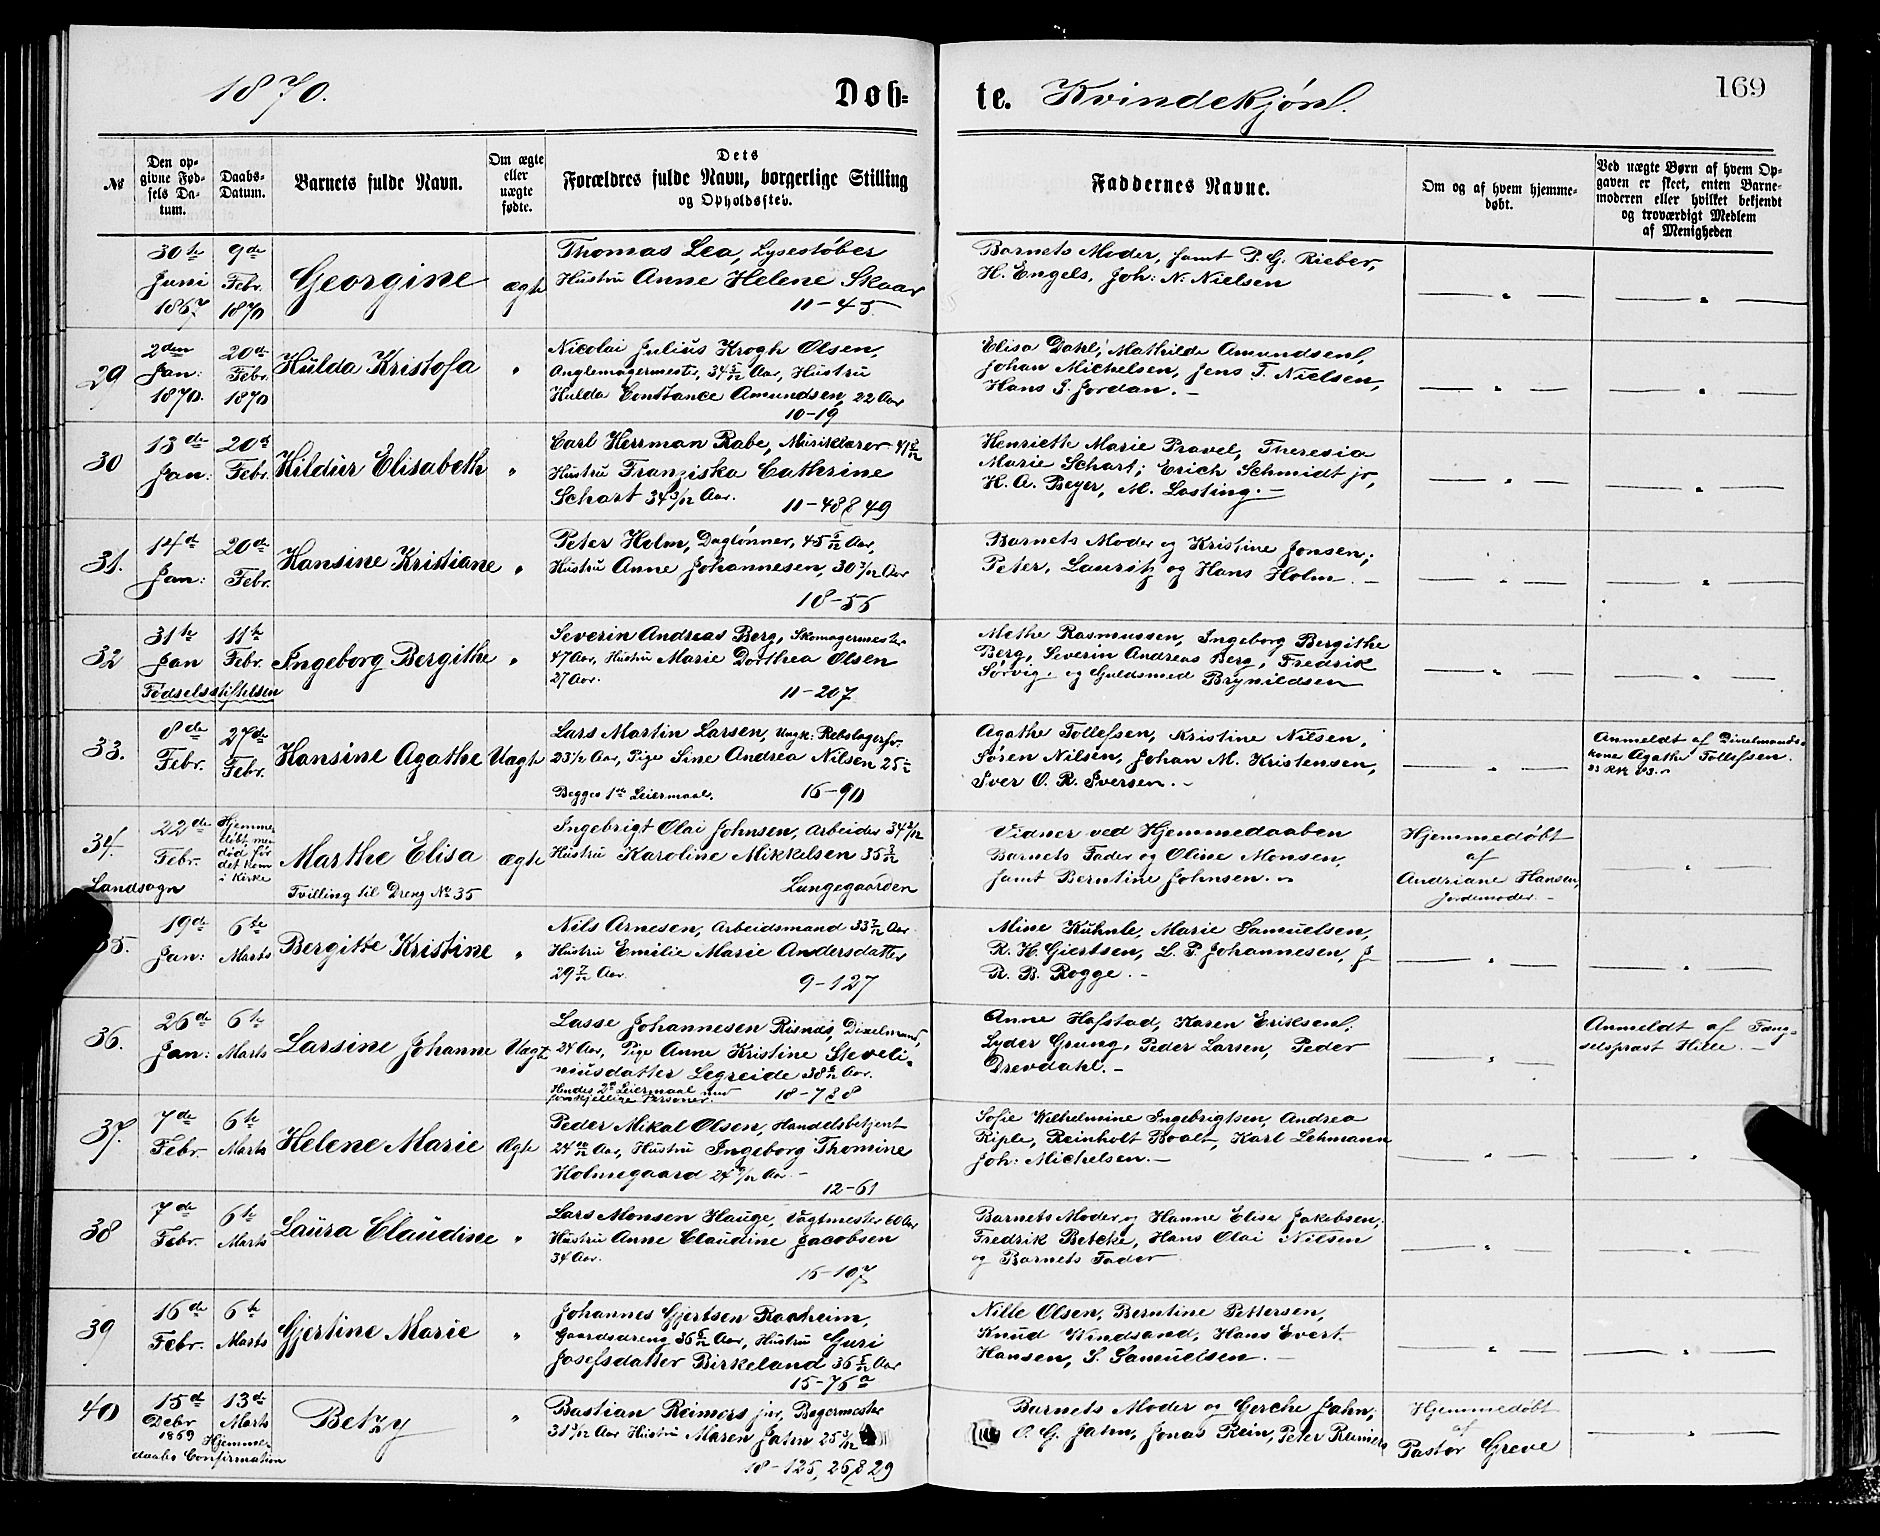 1870.
Døb-
te. Kvindekjøn.
169
№
Den op-
givne Fød-
sels Da-
tum.
Daabs-
Datum.
Barnets fulde Navn.
Om ægte
eller
uægte
fødte.
Dets
Forældres fulde Navn, borgerlige Stilling
og Opholdssted.
Faddernes Navne.
Om og af hvem hjemme-
døbt.
Ved uægte Børn af hvem Op-
gaven er skeet, enten Barne-
moderen eller hvilket bekjendt
og troværdigt Medlem
af Menigheden
30te
Juni
1867
9de
Febr.
1870
Georgine
ægte
Thomas Lea, Lysestøber
Hustru Anne Helene Skaar
11-45
Barnets Moder, samt P. G. Rieber,
H. Engels, Joh: N. Nielsen
29
2den
Jan:
1870.
20de
Febr.
1870
Hulda Kristofa
"
Nicolai Julius Krogh Olsen,
Anglemagermester, 34 Aar, Hustru
Hulda Constance Amundsen, 22 Aar
10-19
Elisa Dahl, Mathilde Amundsen,
Johan Michelsen, Jens T. Nielsen,
Hans J. Jordan.
30
13de
Jan:
20d
Febr.
Hildur Elisabeth
"
Carl Herrman Rabe, Musiklærer 41
Hustru Franziska Catherine
Schart 34 3/12 Aar.
11-48 & 49
Henriette Marie Pravel, Theresia
Marie Schart; Erich Schmidt jr,
H. A. Beyer, M. Lasting.
31.
14d
Jan:
20de
Febr.
Hansine Kristiane
"
Peter Holm, Daglønner, 45 Aar,
Hustru Anne Johannesen, 30 3/12 Aar
18-56
Barnets Moder og Kristine Jonsen;
Peter, Lauritz og Hans Holm.
32
31te
Jan
Fødselsstiftelsen
11te
Febr.
Ingeborg Bergithe
"
Severin Andreas Berg, Skomagermester
47 Aar, Hustru Marie Dorthea Olsen
27 Aar.
11-207
Methe Rasmussen, Ingeborg Bergithe
Berg, Severin Andreas Berg, Fredrik
Sørvig, og Guldsmed Brynildsen
33.
8de
Febr.
27de
Febr.
Hansine Agathe
Uægte
Lars Martin Larsen, Ungk: Rebslagersv.
23 1/2 Aar, Pige Sine Andrea Nilsen 25
Begges 1ste Leiermaal.
16-90
Agathe Tollefsen, Kristine Nilsen,
Søren Nilsen, Johan M. Kristensen,
Iver O. R. Iversen.
Anmeldt af Dixelmands-
kone Agathe Tollefsen.
34.
Landsogn
22de
Febr.
Hjemme
døbt, men
død før
det kom
i Kirke
Marthe Elisa
Tvilling til Dreng No 35
ægte
Ingebrigt Olai Johnsen, Arbeider 34
Hustru Karoline Mikkelsen 35
Lungegaarden
Vidner ved Hjemmedaaben
Barnets Fader og Oline Monsen,
samt Berntine Johnsen.
Hjemmedøbt
af
Andriane Hansen,
Jordemoder.
35.
19de
Jan:
6te
Marts
Bergitte Kristine
"
Nils Arnesen, Arbeidsmand 33 7/12 Aar
Hustru Emilie Marie Andersdatter
29 7/12 Aar.
9-127
Mine Kühnle, Marie Samuelsen,
R. H. Giertsen, L. P. Johannesen, J
R. B. Rogge.
36.
26de
Jan:
6te
Marts
Larsine Johanne
Uægt.
Lasse Johannesen Risnæs, Dixelmand,
24 Aar, Pige Anne Kristine Steveli-
niusdatter Legreide 38 Aar.
Hendes 2det Leiermaal med
forskjellige Personer.
18-728
Anne Hafstad, Karen Eriksen,
Lyder Grung, Peder Larsen, Peder
Drevdahl.
Anmeldt af Fæng-
selspræst Hille.
37.
7de
Febr.
6te
Marts
Helene Marie
Ægte
Peder Mikal Olsen, Handelsbetjent
24 Aar, Hustru Ingeborg Thomine
Holmegaard 24 Aar.
12-61
Sofie Wilhelmine Ingebrigtsen, Andrea
Riple, Reinholt Boalt, Karl Lehmann
Joh: Michelsen.
38
7de
Febr.
6te
Marts
Laura Claudine
"
Lars Monsen Hauge, Vagtmester 60 Aar
Hustru Anne Claudine Jacobsen
34 Aar.
16-107
Barnets Moder og Hanne Elise Jakobsen;
Fredrik Betcke, Hans Olai Nilsen
og Barnets Fader
39
16de
Febr.
6te
Marts
Gjertine Marie
"
Johannes Gjertsen Raaheim,
Gaardsdreng 36 Aar, Hustru Guri
Josefsdatter Birkeland 36 Aar
15-76a
Nille Olsen, Berntine Pettersen,
Knud Windsand, Hans Evert
Hansen, S. Samuelsen.
40
15d
Debr
1869
13de
Marts
Hjemme-
daabs Confirmation
Betzy
"
Bastian Reimers jur, Bagermester
31 Aar Hustru Maren Jahn 25
18-125, 26 & 29
Barnets Moder og Gerche Jahn;
O. G. Jahn, Jonas Rein, Peter Reimers
Hjemmedøbt
af
Pastor Greve